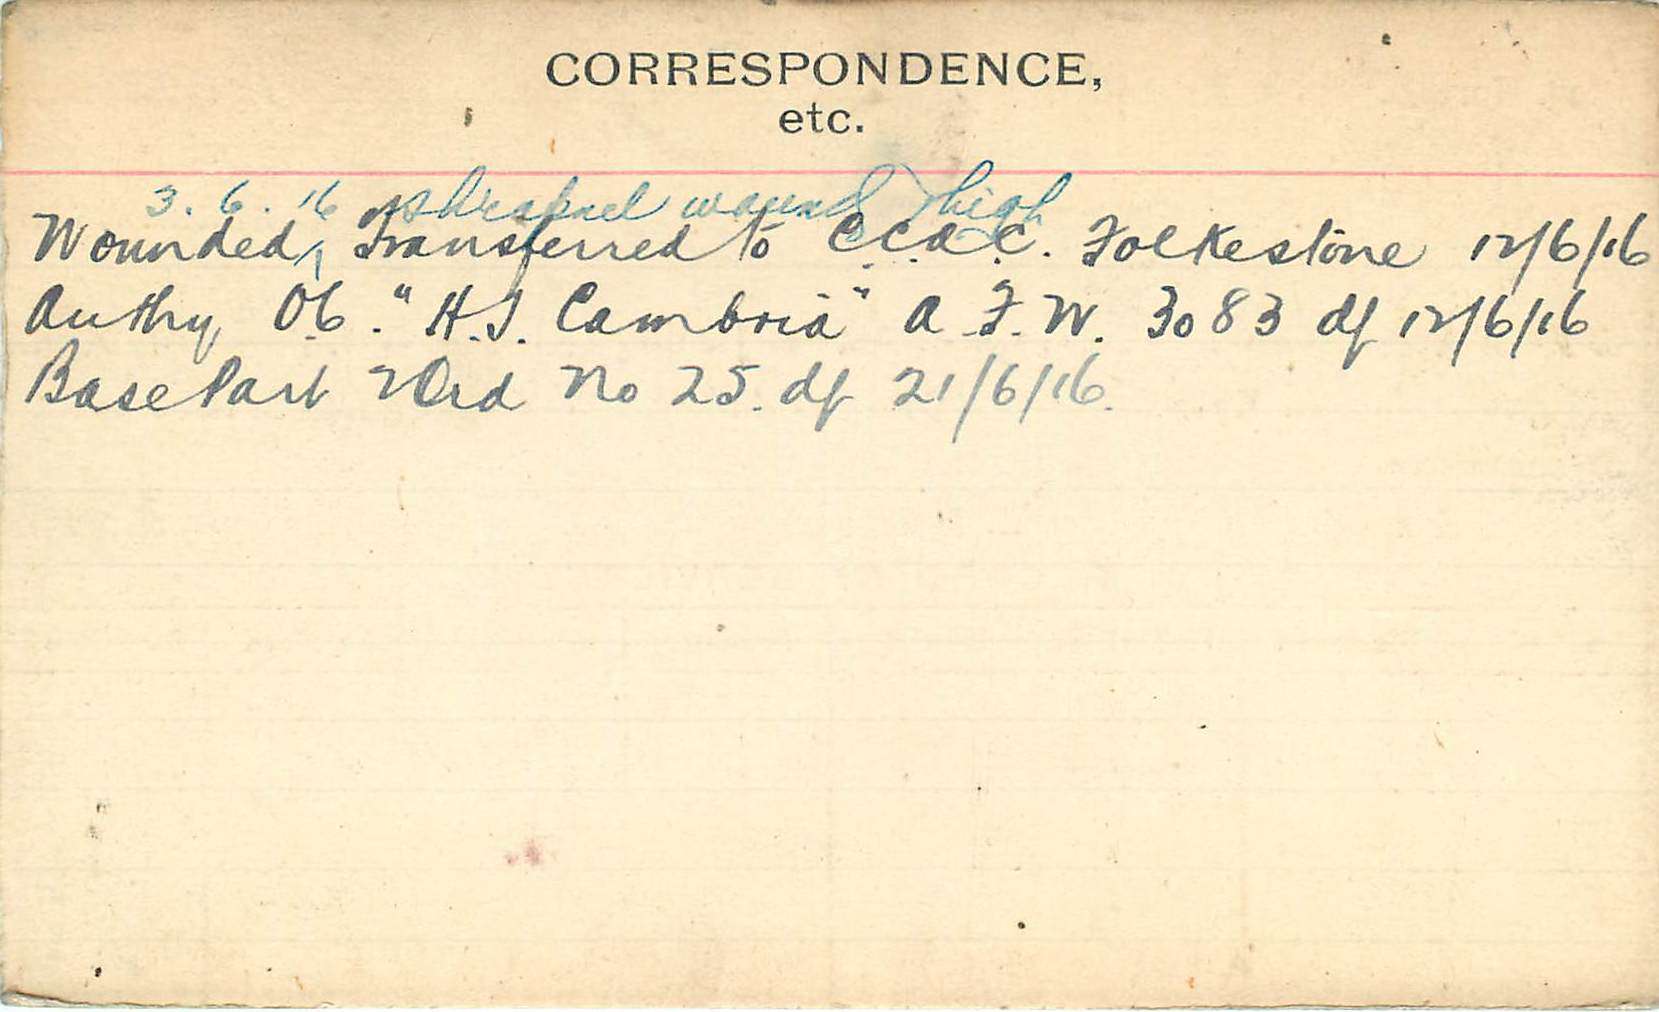 CORRESPONDENCE,
etc.
3.6.16 shrapnel wound thigh
Wounded, Transferred to C.C.A.C. Folkestone 12/6/16
Authy O.C. "H.S. Cambria" A.F.W. 3083 df 12/6/16
Base Part 2 Ord No 25. df 21/6/16.